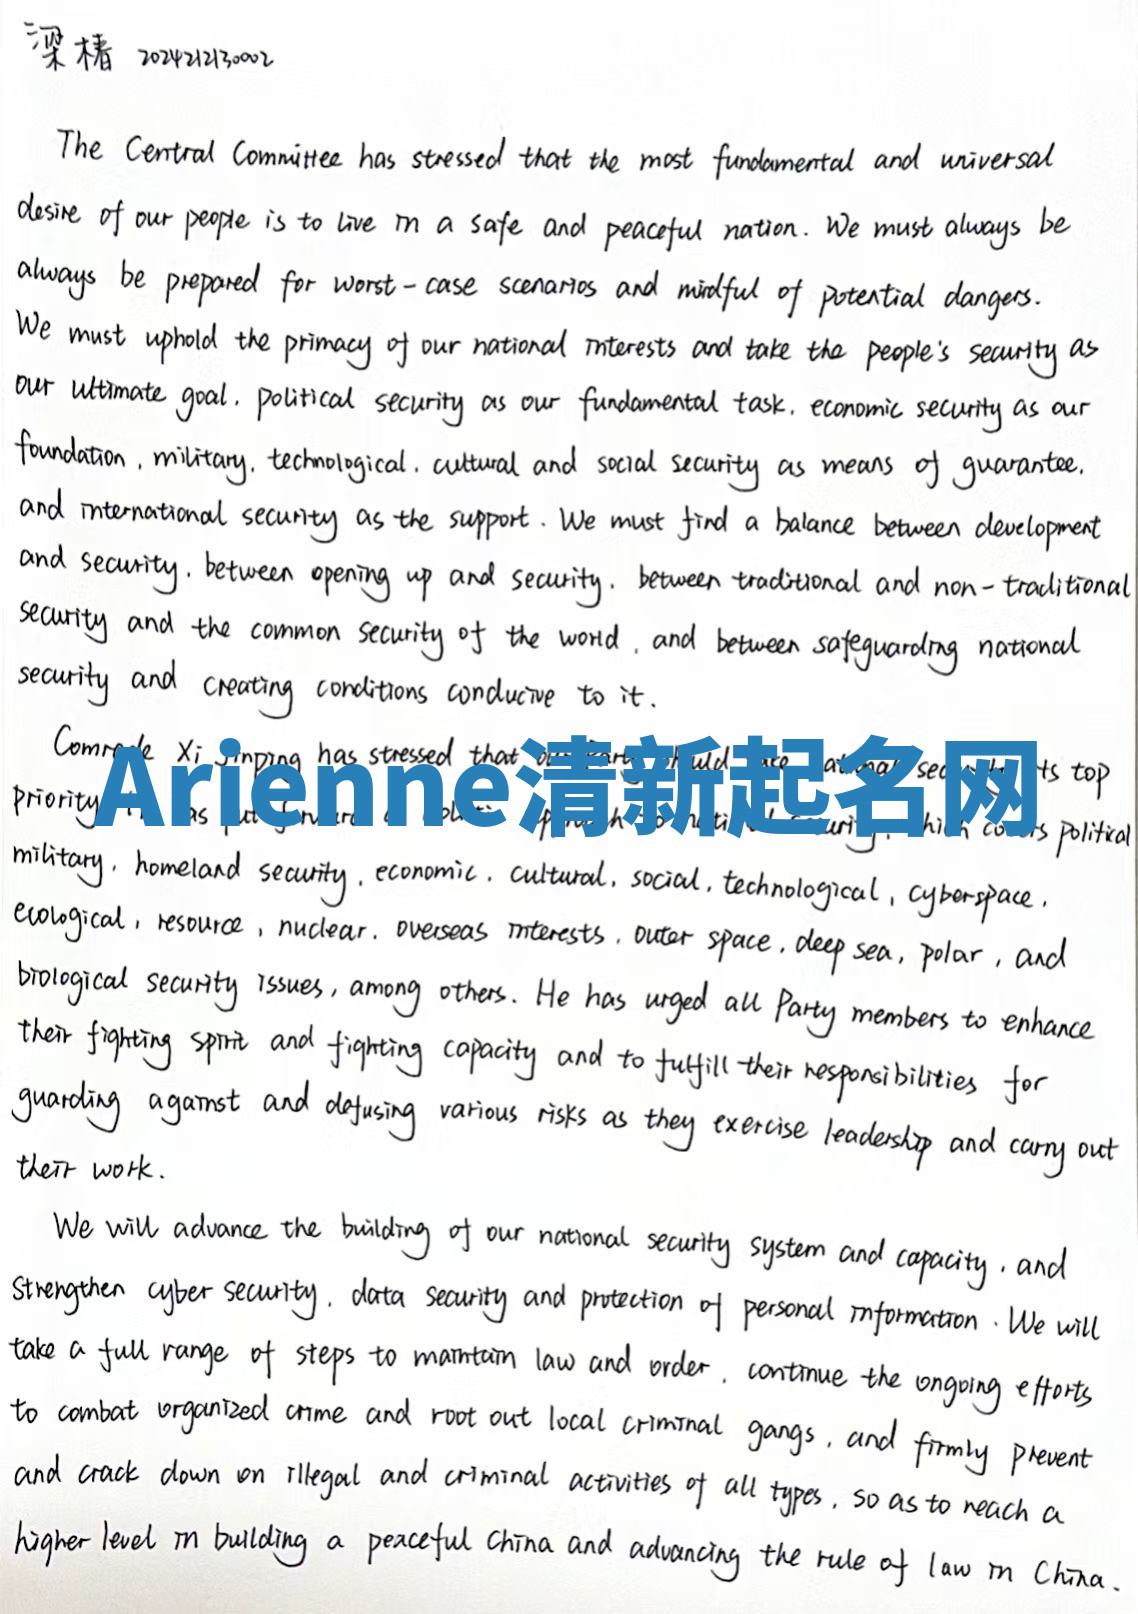 梁椿 2024212130002
The Central Committee has stressed that the most fundamental and universal
desire of our people is to live in a safe and peaceful nation. We must always be
always be prepared for worst-case scenarios and mindful of potential dangers.
We must uphold the primacy of our national interests and take the people's security as
our ultimate goal, political security as our fundamental task, economic security as our
foundation, military, technological, cultural and social security as means of guarantee,
and international security as the support. We must find a balance between development
and security, between opening up and security, between traditional and non-traditional
security and the common security of the world, and between safeguarding national
security and creating conditions conducive to it.
Comrade Xi Jinping has stressed that our Party should security its top
priority as put forward a to security, which covers political
Arienne清新起名网
military, homeland security, economic, cultural, social, technological, cyberspace,
ecological, resource, nuclear, overseas interests, outer space, deep sea, polar, and
biological security issues, among others. He has urged all Party members to enhance
their fighting spirit and fighting capacity and to fulfill their responsibilities for
guarding against and defusing various risks as they exercise leadership and carry out
their work.
We will advance the building of our national security system and capacity, and
strengthen cyber security, data security and protection of personal information. We will
take a full range of steps to maintain law and order, continue the ongoing efforts
to combat organized crime and root out local criminal gangs, and firmly prevent
and crack down on illegal and criminal activities of all types, so as to reach a
higher level in building a peaceful China and advancing the rule of law in China.